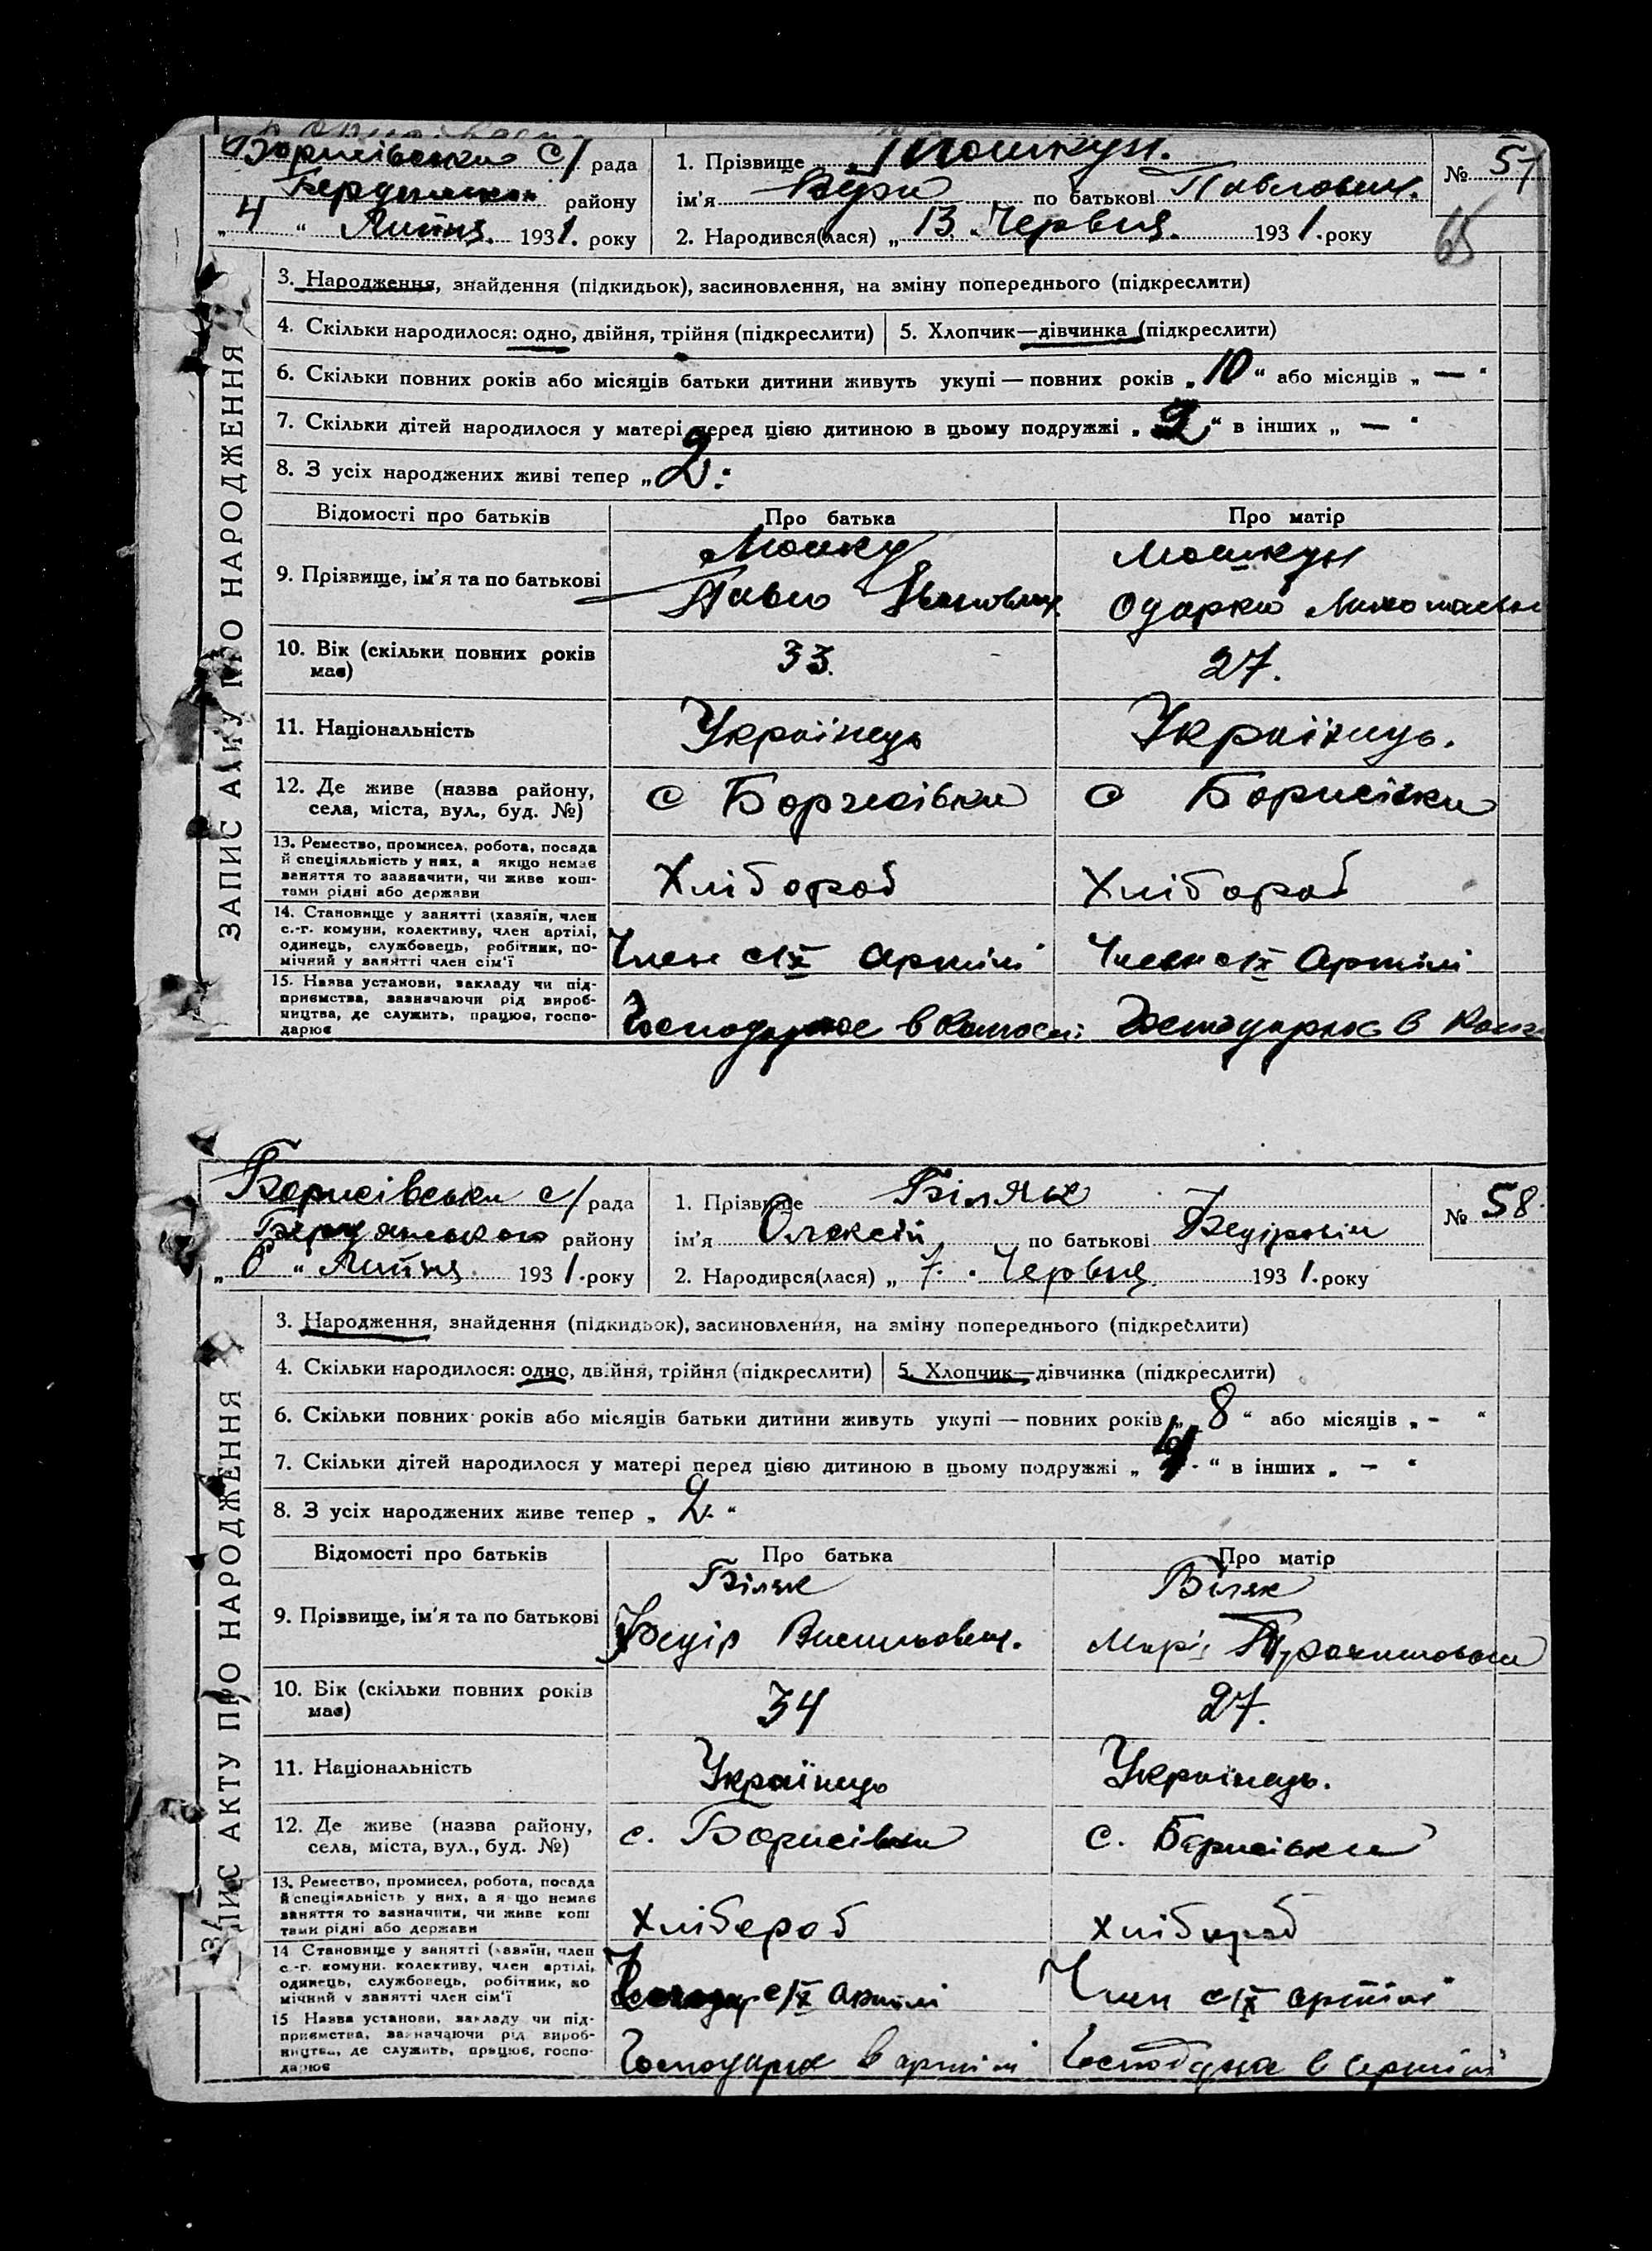 ЗАПИС АКТУ ПРО НАРОДЖЕННЯ
Борисівська с/ рада
Бердянськ району
„4“ Липня. 1931. року
1. Прізвище Мошкун.
ім'я Віра по батькові Павловна.
2. Народився(лася) „13. Червня. 1931. року
№ 57
65
3. Народження, знайдення (підкидьок), засиновлення, на зміну попереднього (підкреслити)
4. Скільки народилося: одно, двійня, трійня (підкреслити)
5. Хлопчик—дівчинка (підкреслити)
6. Скільки повних років або місяців батьки дитини живуть укупі — повних років „10“ або місяців „—“
7. Скільки дітей народилося у матері перед цією дитиною в цьому подружжі „2“ в інших „—“
8. З усіх народжених живі тепер „2.“
Відомості про батьків
Про батька
Про матір
9. Прізвище, ім'я та по батькові
Мошку
Павло Іванович
Мошкун
Одарка
10. Вік (скільки повних років має)
33.
27.
11. Національність
Українець
Українець.
12. Де живе (назва району, села, міста, вул., буд. №)
с Борисівка
с Борисівка
13. Ремество, промисел, робота, посада й спеціяльність у них, а якщо немає заняття то зазначити, чи живе коштами рідні або держави
Хлібороб
Хлібороб
14. Становище у занятті (хазяїн, член с.-г. комуни, колективу, член артілі, одинець, службовець, робітник, помічний у занятті член сім'ї
Член с/г артілі
Член с/г артілі
15. Назва установи, закладу чи підприємства, зазначаючи рід виробництва, де служить, працює, господарює
Господарює в
Господарює в
ЗАПИС АКТУ ПРО НАРОДЖЕННЯ
Борисівська с/ рада
Бердянського району
„6“ Липня. 1931. року
1. Прізвище Біляк
ім'я Олексій по батькові Федірович
2. Народився(лася) „7. Червня. 1931. року
№ 58.
3. Народження, знайдення (підкидьок), засиновлення, на зміну попереднього (підкреслити)
4. Скільки народилося: одно, двійня, трійня (підкреслити)
5. Хлопчик—дівчинка (підкреслити)
6. Скільки повних років або місяців батьки дитини живуть укупі — повних років „8“ або місяців „-“
7. Скільки дітей народилося у матері перед цією дитиною в цьому подружжі „4.“ в інших „—“
8. З усіх народжених живе тепер „2.“
Відомості про батьків
Про батька
Про матір
9. Прізвище, ім'я та по батькові
Біляк
Федір Васильович.
Біляк
Марія
10. Вік (скільки повних років має)
34
27.
11. Національність
Українець
Українець.
12. Де живе (назва району, села, міста, вул., буд. №)
с. Борисівка
с. Борисівка
13. Ремество, промисел, робота, посада й спеціяльність у них, а якщо немає заняття то зазначити, чи живе коштами рідні або держави
Хлібороб
Хлібороб
14. Становище у занятті (хазяїн, член с.-г. комуни, колективу, член артілі, одинець, службовець, робітник, помічний у занятті член сім'ї
с/г артілі
Член с/г артілі
15. Назва установи, закладу чи підприємства, зазначаючи рід виробництва, де служить, працює, господарює
Господарює в артілі
Господарює в артілі